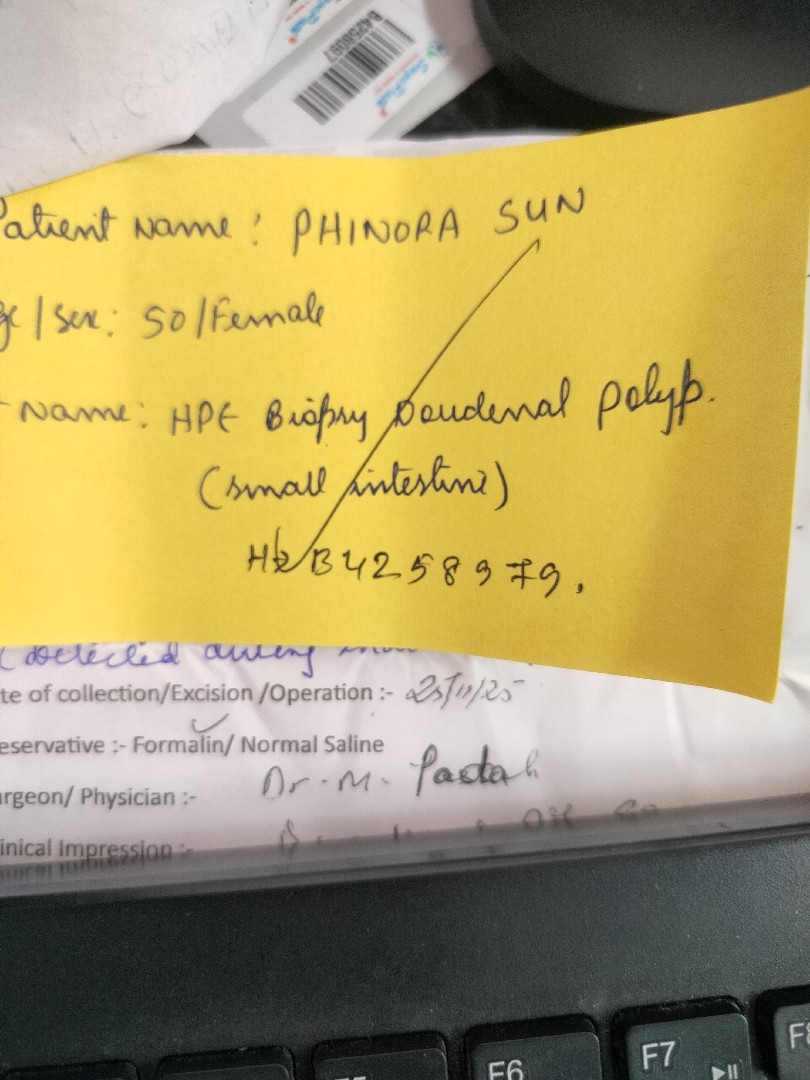 B4258997
Patient Name: PHINORA SUN
ge/Sex: 50/Female
Name: HPE Biopsy Doudenal Polyp.
(small intestine)
B4258979.
(Detected during
te of collection/Excision /Operation :- 25/11/25
eservative :- Formalin/ Normal Saline
urgeon/ Physician :- Dr. M.
inical Impression :-
F6
F7
F8